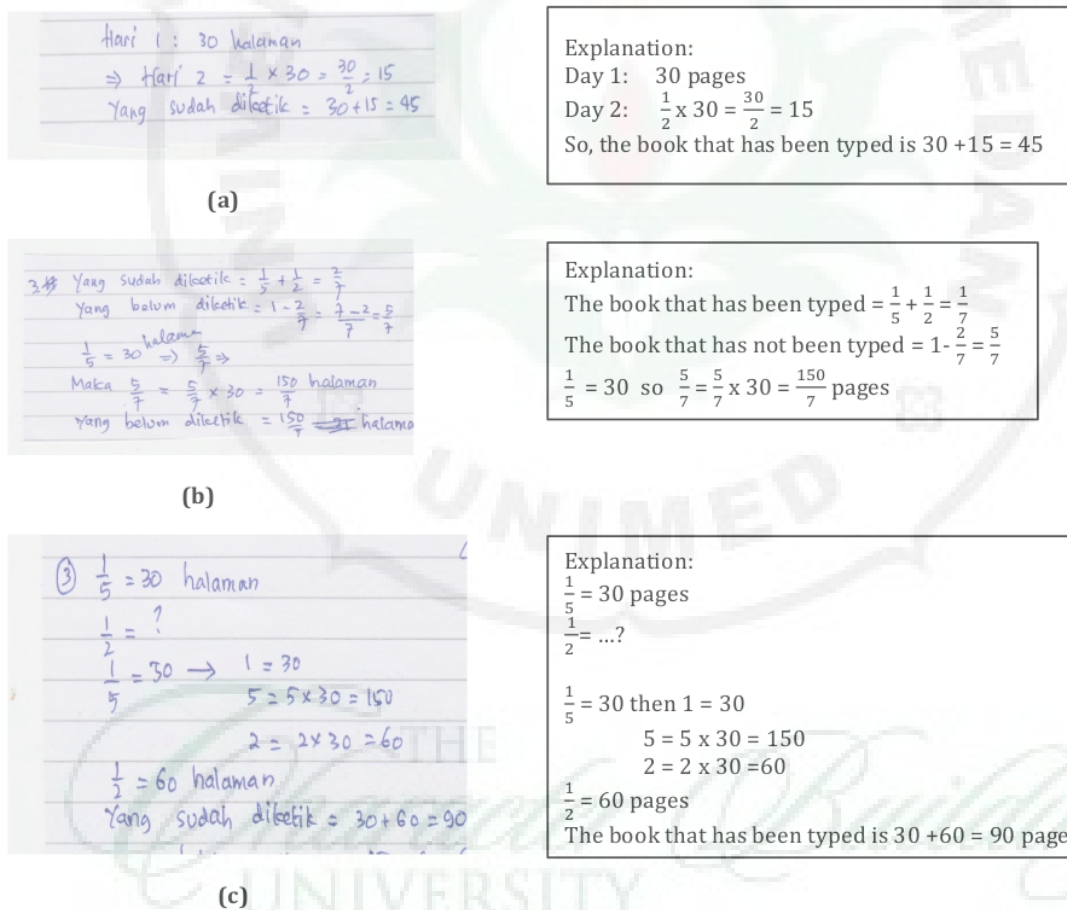 Hari 1 : 30 halaman
⇒ Hari 2 = 1/2 × 30 = 30/2 = 15
Yang sudah diketik = 30 + 15 = 45
(a)
Explanation:
Day 1: 30 pages
Day 2: 1/2 x 30 = 30/2 = 15
So, the book that has been typed is 30 +15 = 45
3. Yang sudah diketik = 1/5 + 1/2 = 2/7
Yang belum diketik = 1 - 2/7 = 7-2/7 = 5/7
1/5 = 30 halaman ⇒ 5/7 ⇒
Maka 5/7 = 5/7 × 30 = 150/7 halaman
Yang belum diketik = 150/7 halama
(b)
Explanation:
The book that has been typed = 1/5 + 1/2 = 1/7
The book that has not been typed = 1- 2/7 = 5/7
1/5 = 30 so 5/7 = 5/7 x 30 = 150/7 pages
③ 1/5 = 30 halaman
1/2 = ?
1/5 = 30 → 1 = 30
5 = 5 × 30 = 150
2 = 2 × 30 = 60
1/2 = 60 halaman
Yang sudah diketik = 30 + 60 = 90
(c)
Explanation:
1/5 = 30 pages
1/2 = ...?
1/5 = 30 then 1 = 30
5 = 5 x 30 = 150
2 = 2 x 30 =60
1/2 = 60 pages
The book that has been typed is 30 +60 = 90 page
MEDAN
UNIMED
THE
Character Building
UNIVERSITY